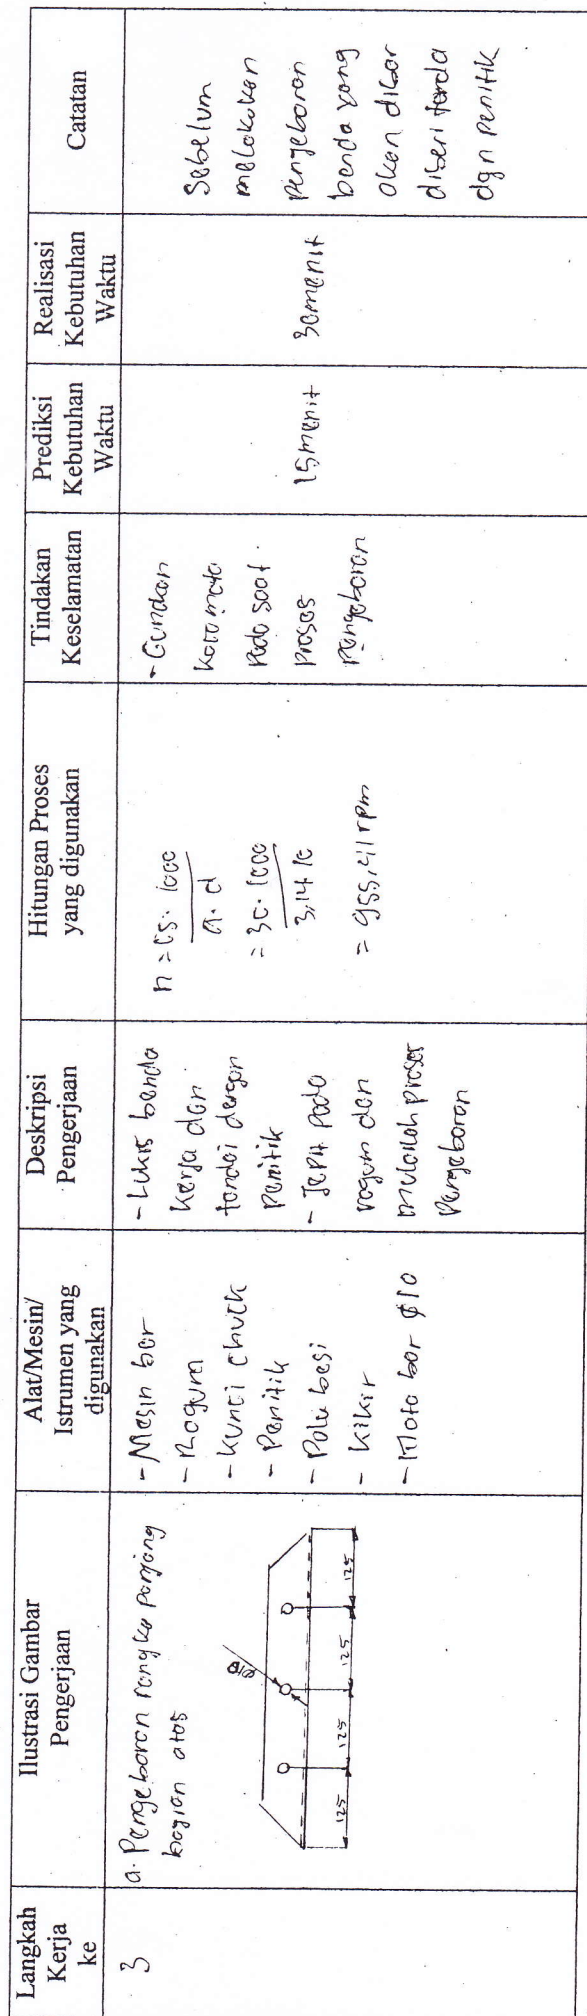 Langkah
Kerja
ke
Ilustrasi Gambar
Pengerjaan
Alat/Mesin/
Istrumen yang
digunakan
Deskripsi
Pengerjaan
Hitungan Proses
yang digunakan
Tindakan
Keselamatan
Prediksi
Kebutuhan
Waktu
Realisasi
Kebutuhan
Waktu
Catatan
3
a. Pengeboran rangka panjang
bagian atas
Ø10
125
125
125
125
- Mesin bor
- Ragum
- Kunci Chuck
- Penitik
- Palu besi
- Kikir
- Mata bor Ø10
- Lukis benda
kerja dan
tandai dengan
Penitik
- Jepit pada
ragum dan
mulailah proses
Pengeboran
n = Cs. 1000
π. d
= 30. 1000
3,14 10
= 955,41 rpm
- Gunakan
kaca mata
Pada saat
Proses
Pengeboran
15 menit
30 menit
Sebelum
melakukan
Pengeboran
benda yang
akan dibor
diberi tanda
dgn penitik